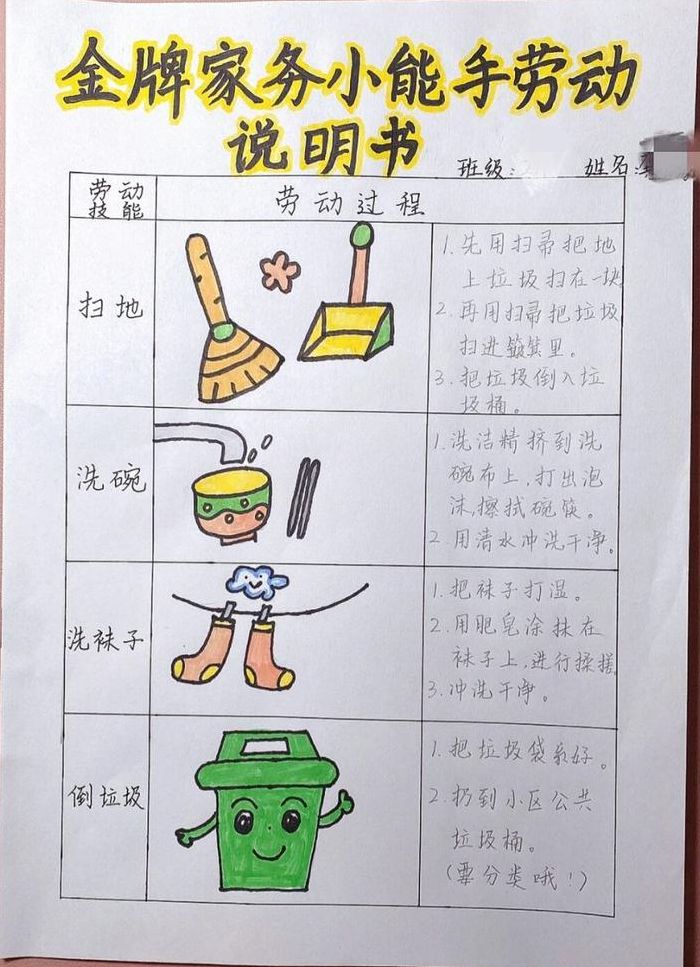 金牌家务小能手劳动
说明书
班级:
姓名:
劳动
技能
劳动过程
扫地
1.先用扫帚把地
上垃圾扫在一块
2.再用扫帚把垃圾
扫进簸箕里。
3.把垃圾倒入垃
圾桶。
洗碗
1.洗洁精挤到洗
碗布上,打出泡
沫,擦拭碗筷。
2.用清水冲洗干净。
洗袜子
1.把袜子打湿。
2.用肥皂涂抹在
袜子上,进行揉搓
3.冲洗干净。
倒垃圾
1.把垃圾袋系好。
2.扔到小区公共
垃圾桶。
(要分类哦!)